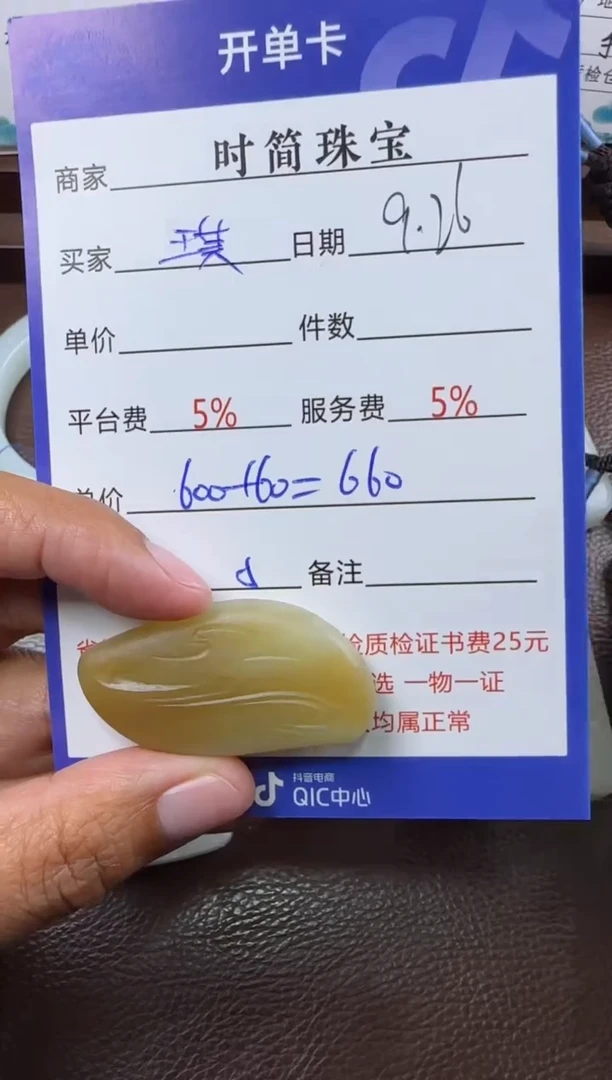 开单卡
商家 时简珠宝
买家 琪 日期 9.26
单价 件数
平台费 5% 服务费 5%
单价 600+60=660
备注
检质检证书费25元
选 一物一证
均属正常
抖音电商
QIC中心